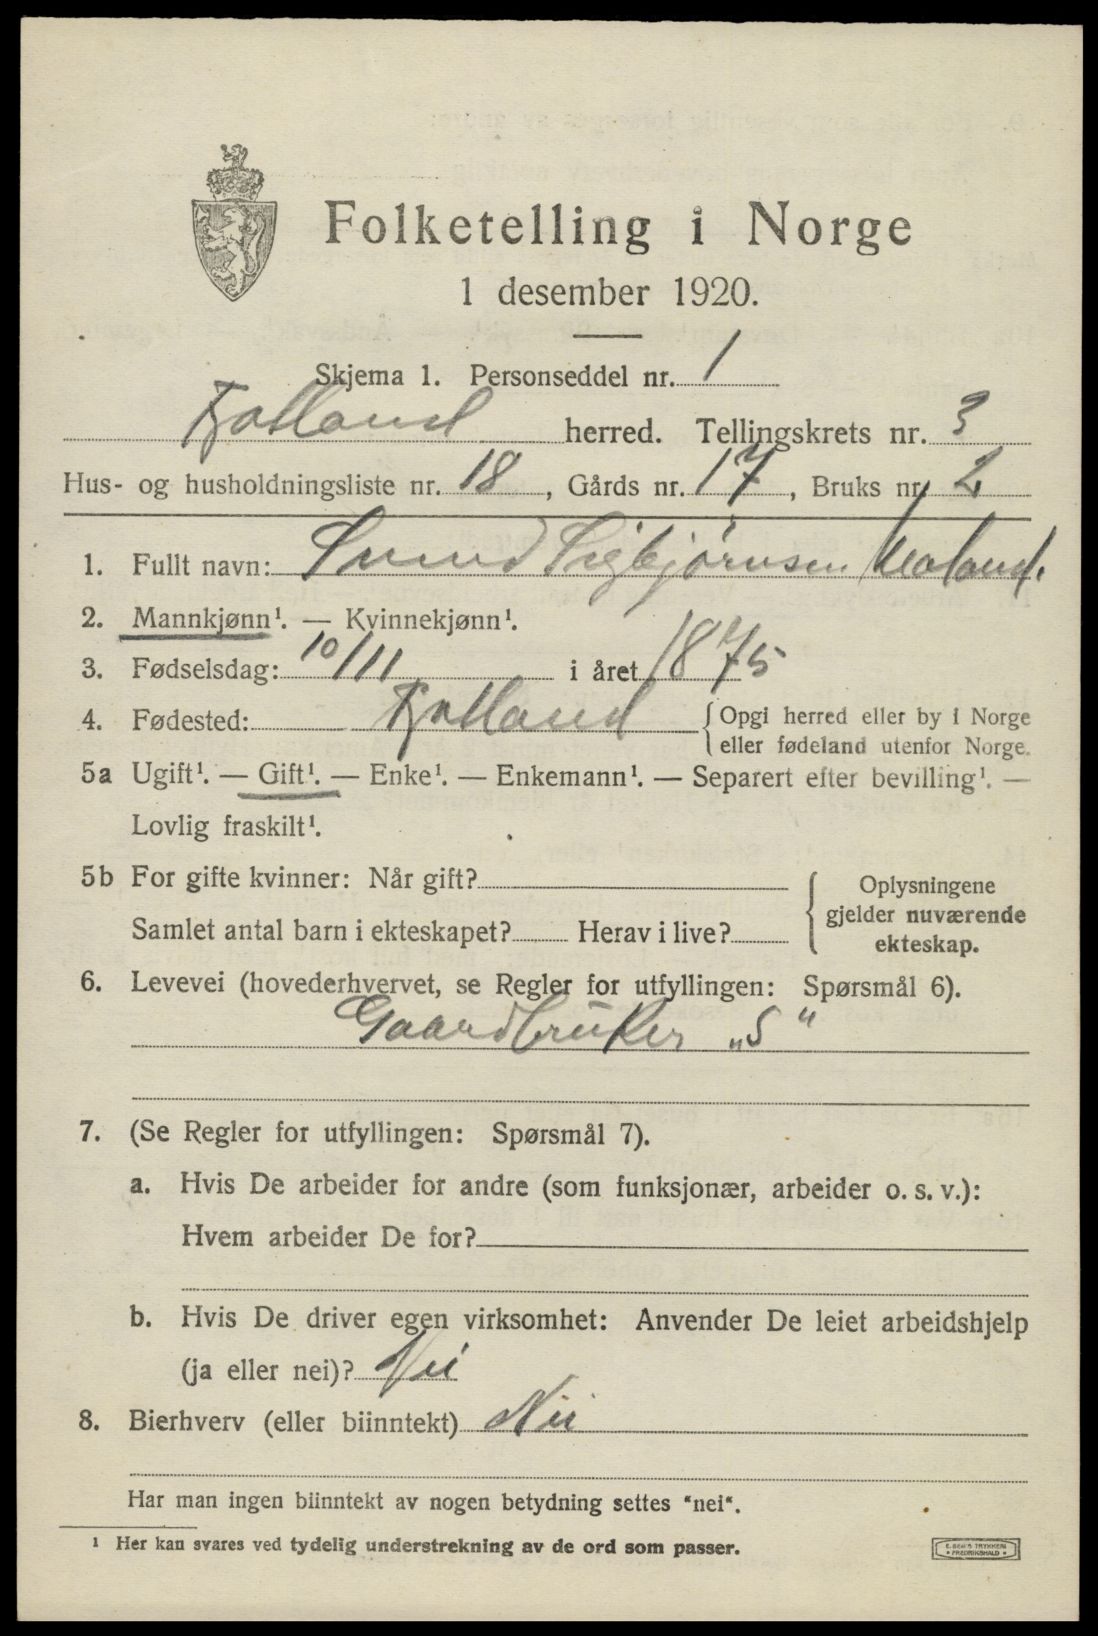 Folketelling i Norge
1 desember 1920.
Skjema 1. Personseddel nr. 1
Fjotland herred. Tellingskrets nr. 3
Hus- og husholdningsliste nr. 18, Gårds nr. 17, Bruks nr. 2
1. Fullt navn: Sigbjørnsen
2. Mannkjønn¹. — Kvinnekjønn¹.
3. Fødselsdag: 10/11 i året 1875
4. Fødested: Fjotland {Opgi herred eller by i Norge
eller fødeland utenfor Norge.
5a Ugift¹. — Gift¹. — Enke¹. — Enkemann¹. — Separert efter bevilling¹. —
Lovlig fraskilt¹.
5b For gifte kvinner: Når gift?
Samlet antal barn i ekteskapet? Herav i live?
Oplysningene
gjelder nuværende
ekteskap.
6. Levevei (hovederhvervet, se Regler for utfyllingen: Spørsmål 6).
Gaardbruker „S"
7. (Se Regler for utfyllingen: Spørsmål 7).
a. Hvis De arbeider for andre (som funksjonær, arbeider o. s. v.):
Hvem arbeider De for?
b. Hvis De driver egen virksomhet: Anvender De leiet arbeidshjelp
(ja eller nei)? Nei
8. Bierhverv (eller biinntekt) Nei
Har man ingen biinntekt av nogen betydning settes "nei".
¹ Her kan svares ved tydelig understrekning av de ord som passer.
TRYKKERI
FREDRIKSHALD